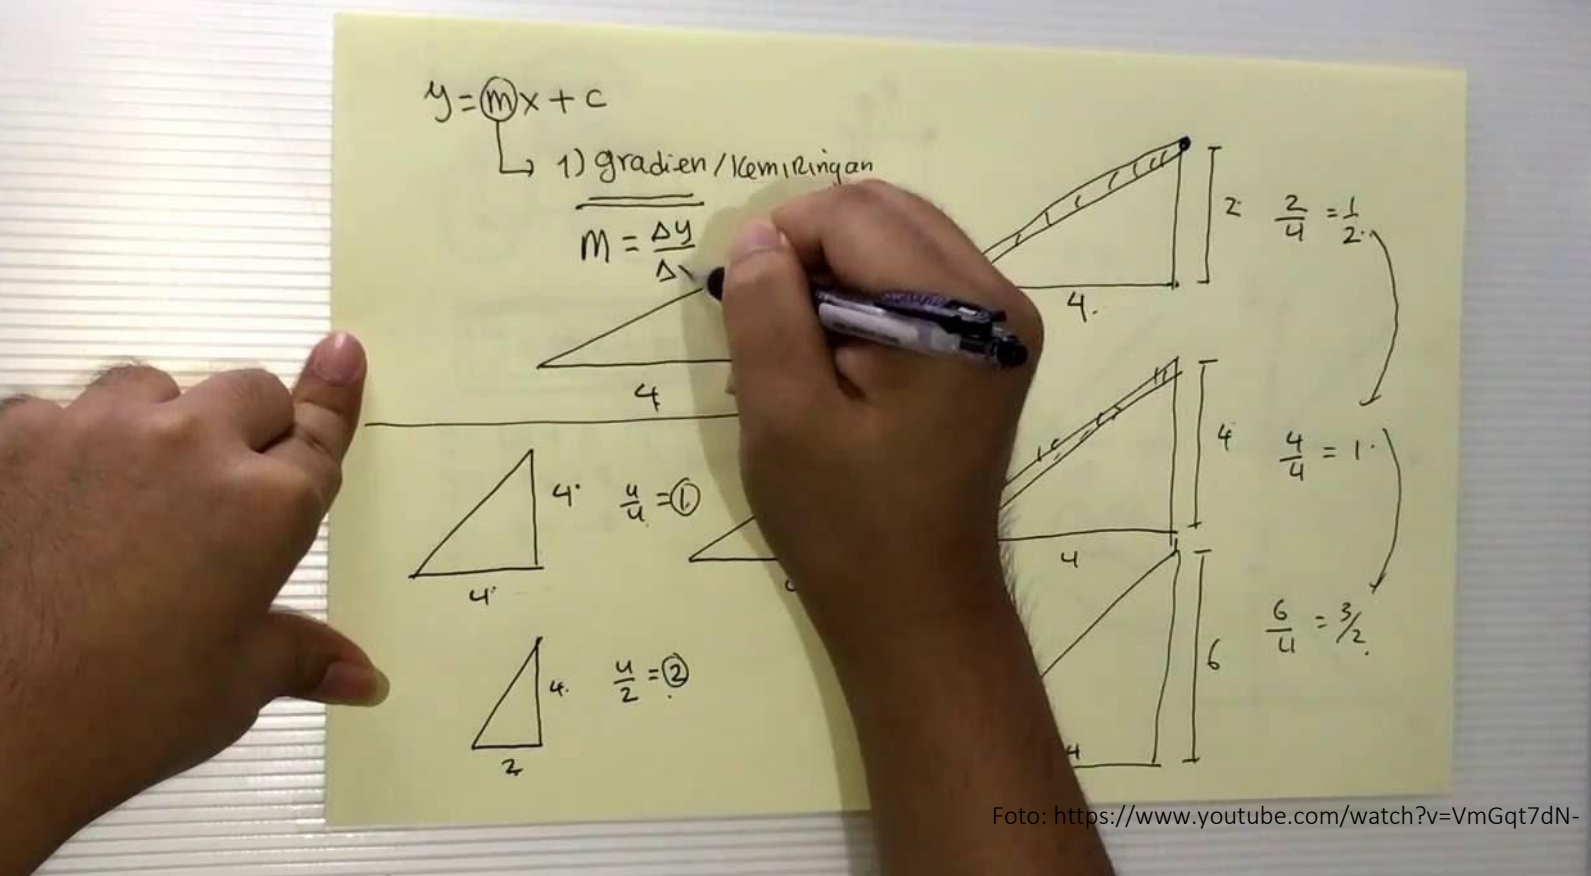 y = mx + c
1) gradien / Kemiringan
m = Δy
Δx
4
4
4
4/4 = 1
4
2
4/2 = 2
2
4
2/4 = 1/2
4
4
4/4 = 1
6
4
6/4 = 3/2
Foto: https://www.youtube.com/watch?v=VmGqt7dN-